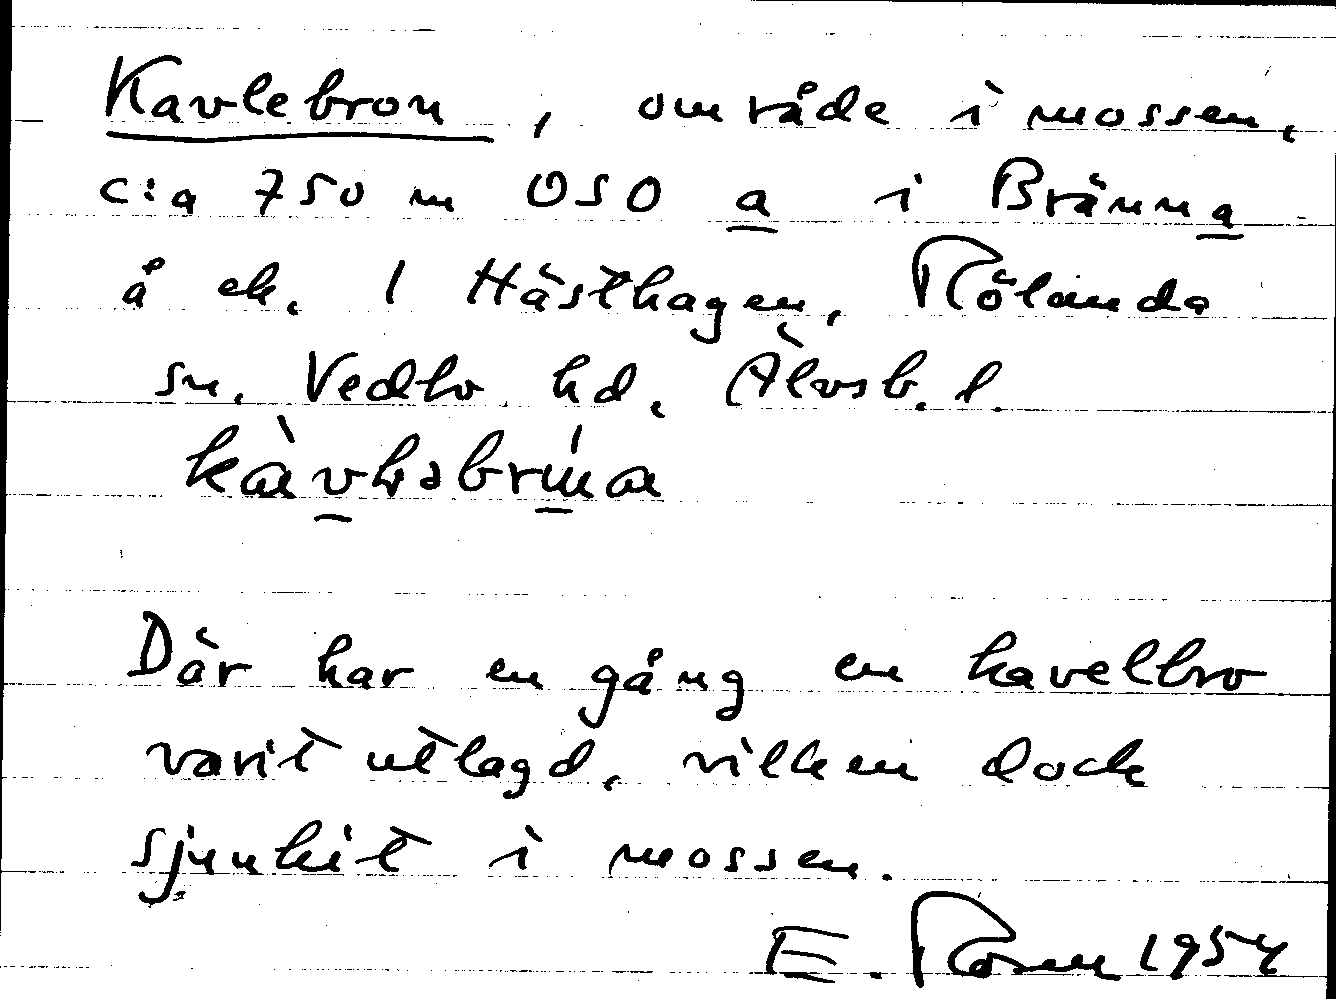 Kavlebron, område i mossen,
c:a 750 m OSO a i Bränna
å ek. 1 Hästhagen, Rölanda
sn. Vedbo hd. Älvsb. l.
Där har en gång en kavelbro
varit utlagd, vilken dock
sjunkit i mossen.
E. Rosen 1954